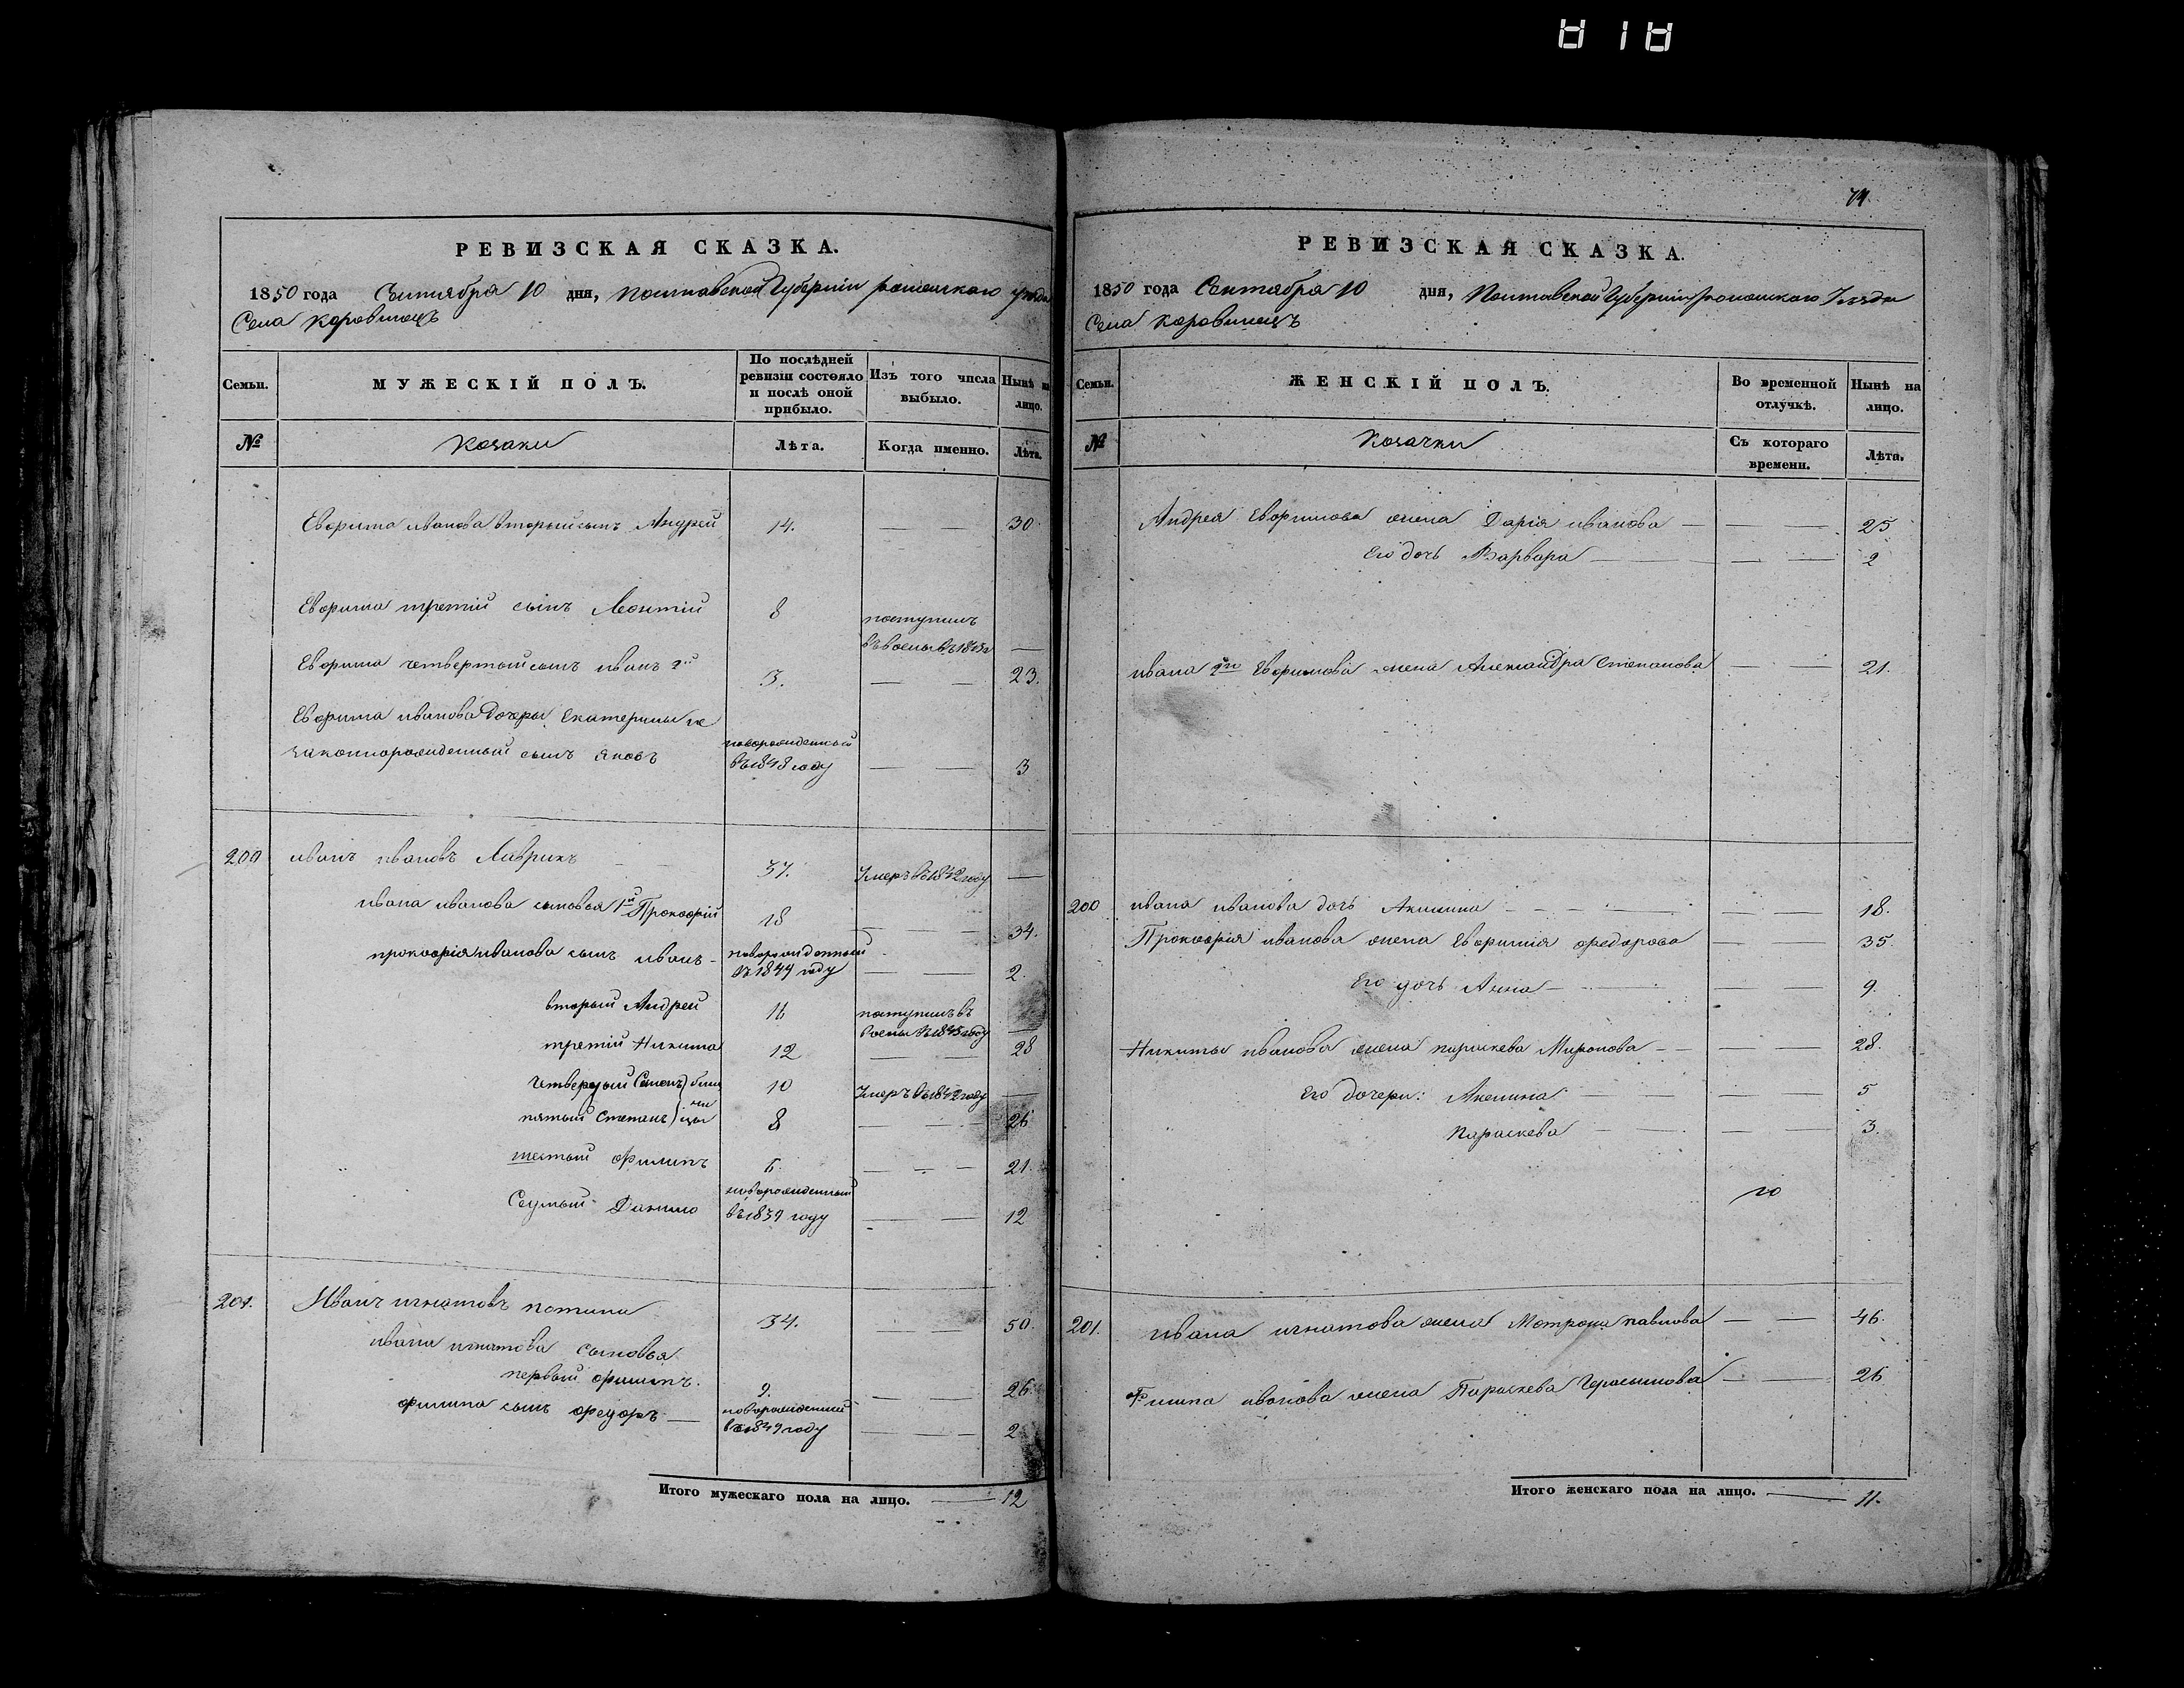 РЕВИЗСКАЯ СКАЗКА.
1850 года Сентября 10 дня, Полтавской Губерніи роменского уезда
Села Коровинецъ
Семьи. МУЖЕСКІЙ ПОЛЪ. По послѣдней ревизіи состояло и послѣ оной прибыло. Изъ того числа выбыло. Нынѣ на лицо.
№ Козаки Лѣта. Когда именно. Лѣта.
Евфима иванова вторый сынъ Андрей 14. — — 30
Евфима третій сынъ Леонтій 8 поступилъ
въ 1843 —
Евфима четвертый сынъ иванъ 2й 3. — — 23.
Евфима иванова дочеры Екатерины не
законнорожденный сынъ яковъ новорожденный
въ 1848 году — — 3
200 иванъ ивановъ Лаврикъ 37. Умеръ въ 1842 году —
ивана иванова сыновья 1й Прокофій 18 — — 34.
прокофія иванова сынъ иванъ - новорожденный
въ 1849 году — — 2.
вторый Андрей 16 поступилъ въ
въ 1845 году —
третій Никита 12 — — 28
Четвертый Семенъ) близ 10 Умеръ въ 1842 году —
пятый Степанъ) нецы 8 — — 26
шестый филипъ 6. — — 21.
Седмый Данило новорожденный
въ 1839 году — — 12
201. Иванъ игнатовъ 34. — — 50.
ивана игнатова сыновья
первый филипъ. 9. — — 26.
филипа сынъ федоръ — новорожденный
въ 1849 году — — 2
Итого мужескаго пола на лицо. — 12
74
РЕВИЗСКАЯ СКАЗКА.
1850 года Сентября 10 дня, Полтавской Губерніи роменского Уезда
Села Коровинецъ
Семьи. ЖЕНСКІЙ ПОЛЪ. Во временной отлучкѣ. Нынѣ на лицо.
№ Козачки Съ котораго времени. Лѣта.
Андрея Евфимова жена Дарія иванова — — — 25
Его дочь Варвара — — — 2
ивана 2го Евфимова жена Александра Степанова — — 21.
200 ивана иванова дочь Акилина — — — 18.
Прокофія иванова жена Евфимія федорова — — 35.
Его дочь Анна — — — 9.
Никиты иванова жена параскева Миронова — — — 28.
Его дочери: Акилина — — — 5
параскева — — — 3.
201. ивана игнатова жена Мотрона павлова — — 46.
Филипа иванова жена Параскева Герасимова — — 26
Итого женскаго пола на лицо. — 11.